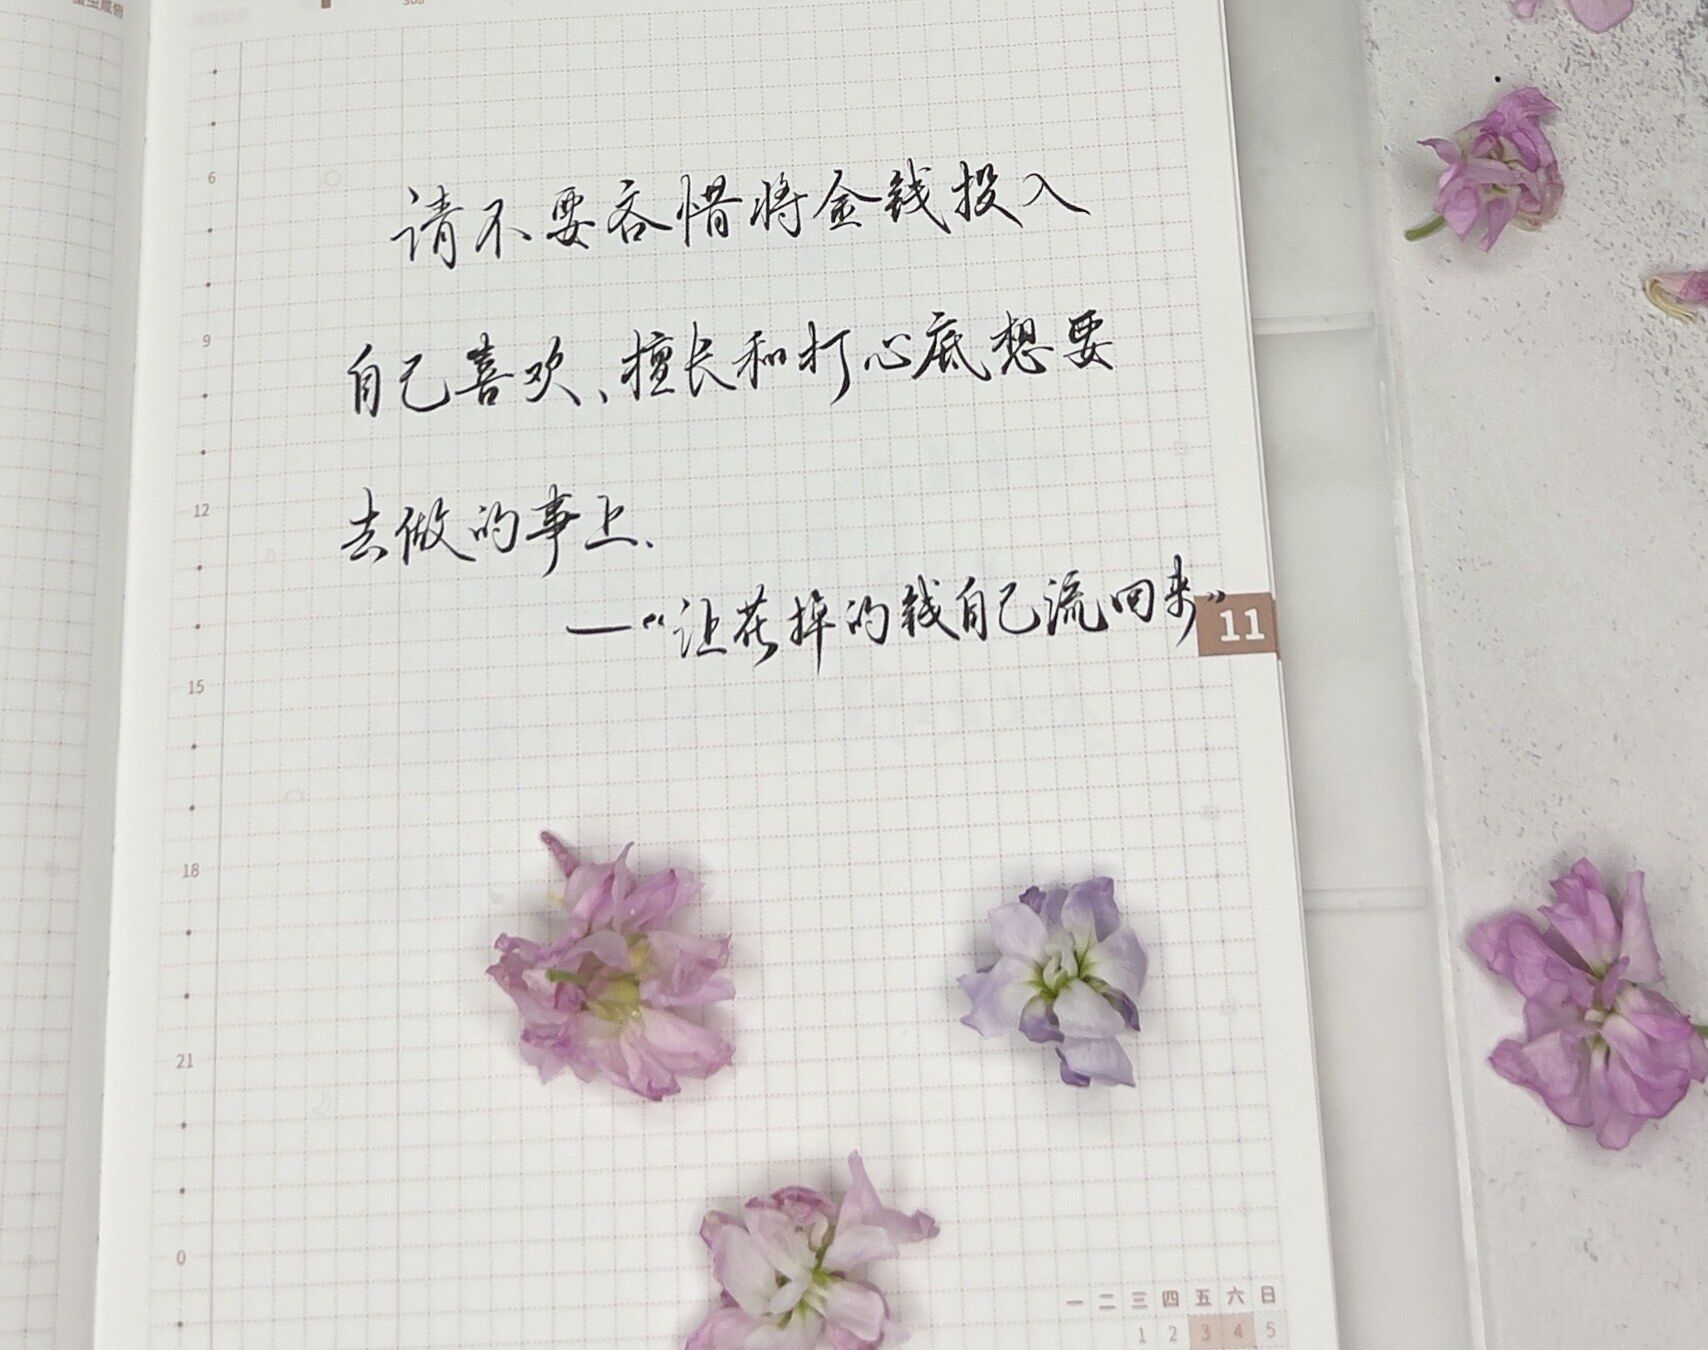 308
6
请不要吝惜将金钱投入
9
自己喜欢、擅长和打心底想要
12
去做的事上.
—“让花掉的钱自己流回来”
11
15
18
21
0
一 二 三 四 五 六 日
1 2 3 4 5